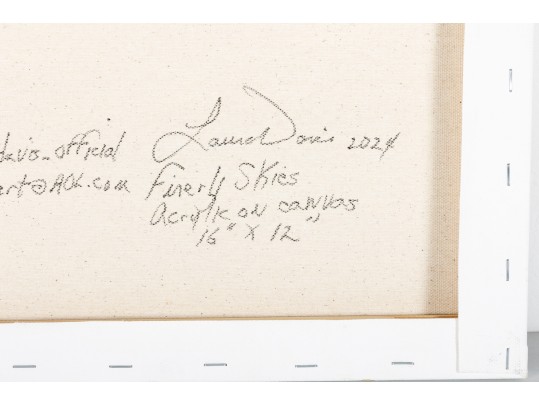 davis_official Laura Davis 2024
art@AOL.com Finerly Skies
Acrylic on canvas
16" x 12"